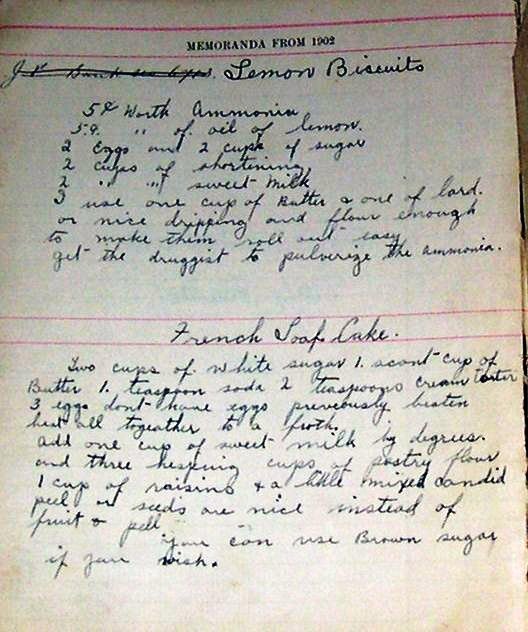 MEMORANDA FROM 1902
Lemon Biscuits
5¢ Worth Ammonia
5¢ " of oil of lemon.
2 Eggs and 2 cups of sugar
2 cups of shortening
2 " " sweet milk
3 use one cup of Butter & one of lard.
or nice dripping and flour enough
to make them roll out easy
get the druggist to pulverize the ammonia.
French Loaf Cake.
Two cups of white sugar 1. scant cup of
Butter 1. teaspoon soda 2 teaspoons cream tarter
3 eggs dont have eggs previously beaten
beat all togeather to a froth
add one cup of sweet milk by degrees.
and three heaping cups of pastry flour
1 cup of raisins & a little mixed candid
peel or seeds are nice instead of
fruit & pell
you can use Brown sugar
if you wish.